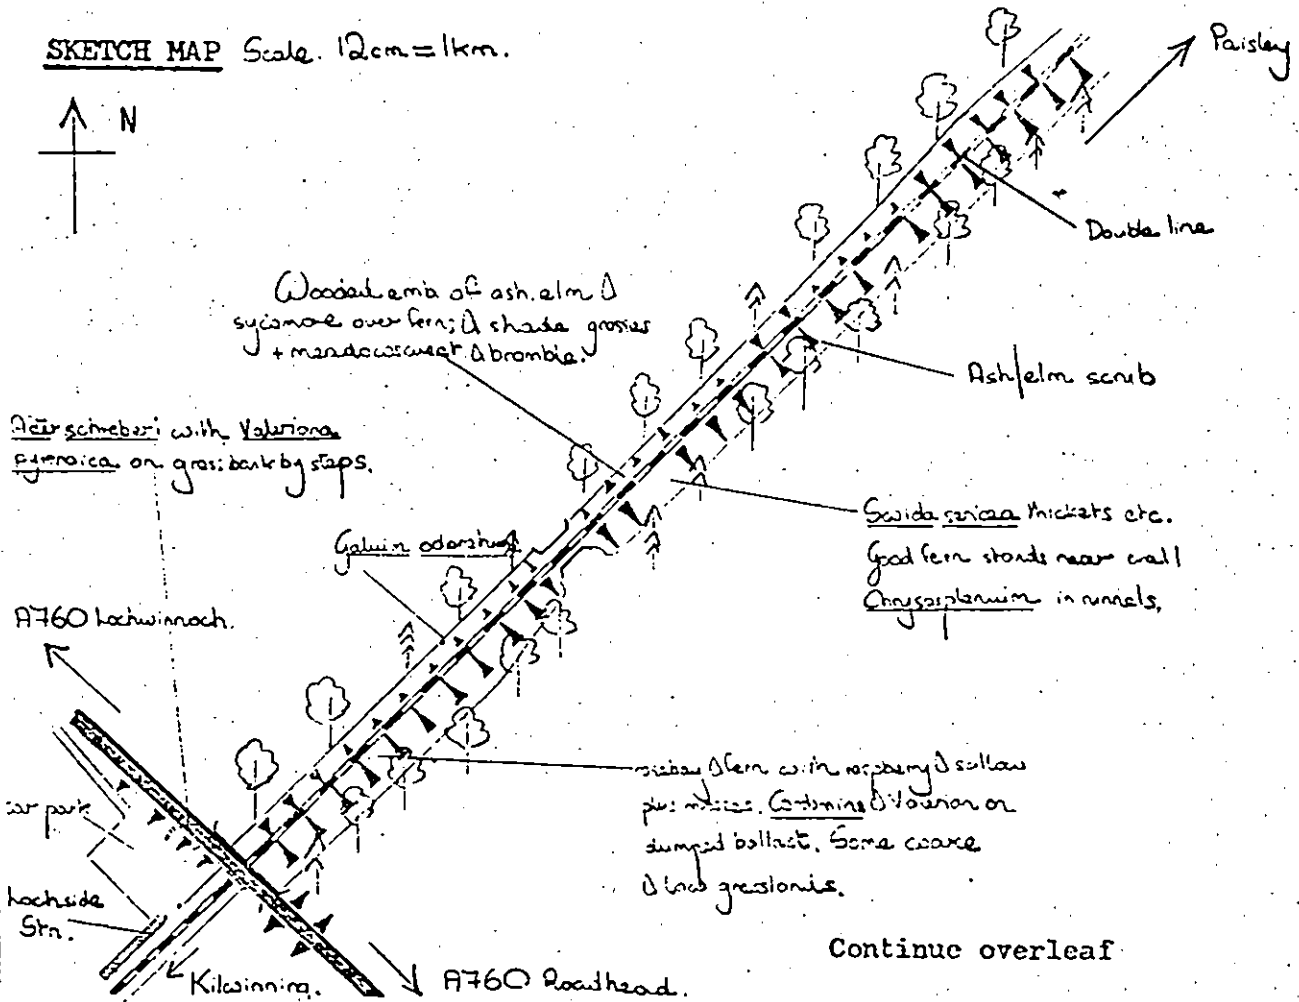 SKETCH MAP Scale. 12cm = 1km.
N
Paisley
Double line
Wooded emb of ash, elm &
sycamore over fern; & shade grasses
+ meadowsweet & bramble.
Ash/elm scrub
schreberi with Valeriana
pyrenaica on grass bank by steps.
Swida sericea thickets etc.
Good fern stands near wall
Chrysosplenium in runnels.
Galium odoratum
A760 Lochwinnoch.
rosebay & fern with raspberry & sallow
plus mosses. Cardamine & Valerian on
dumped ballast. Some coarse
& low grasslands.
car park
Lochside
Stn.
Kilwinning.
A760 Roadhead.
Continue overleaf